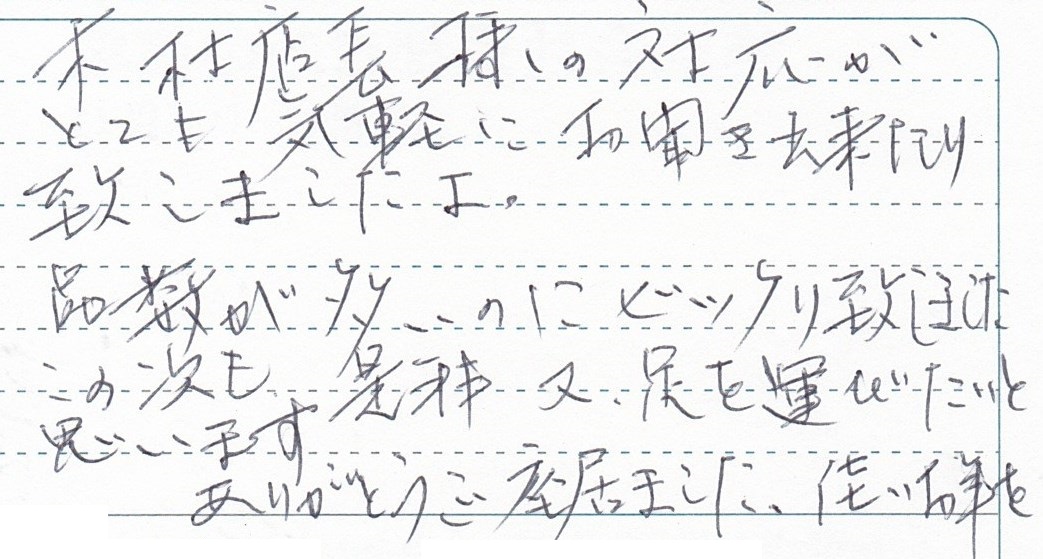 木村店長様の対応が
とても気軽にお聞き出来たり
致しましたよ。
品数が多いのにビックリ致しました
この次も是非又、足を運びたいと
思います
ありがとうご座居ました、佳いお年を